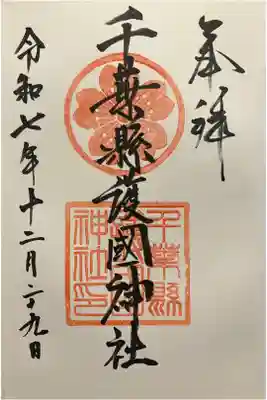 奉拝
千葉縣護國神社
令和七年十二月二十九日
千葉縣護國神社印